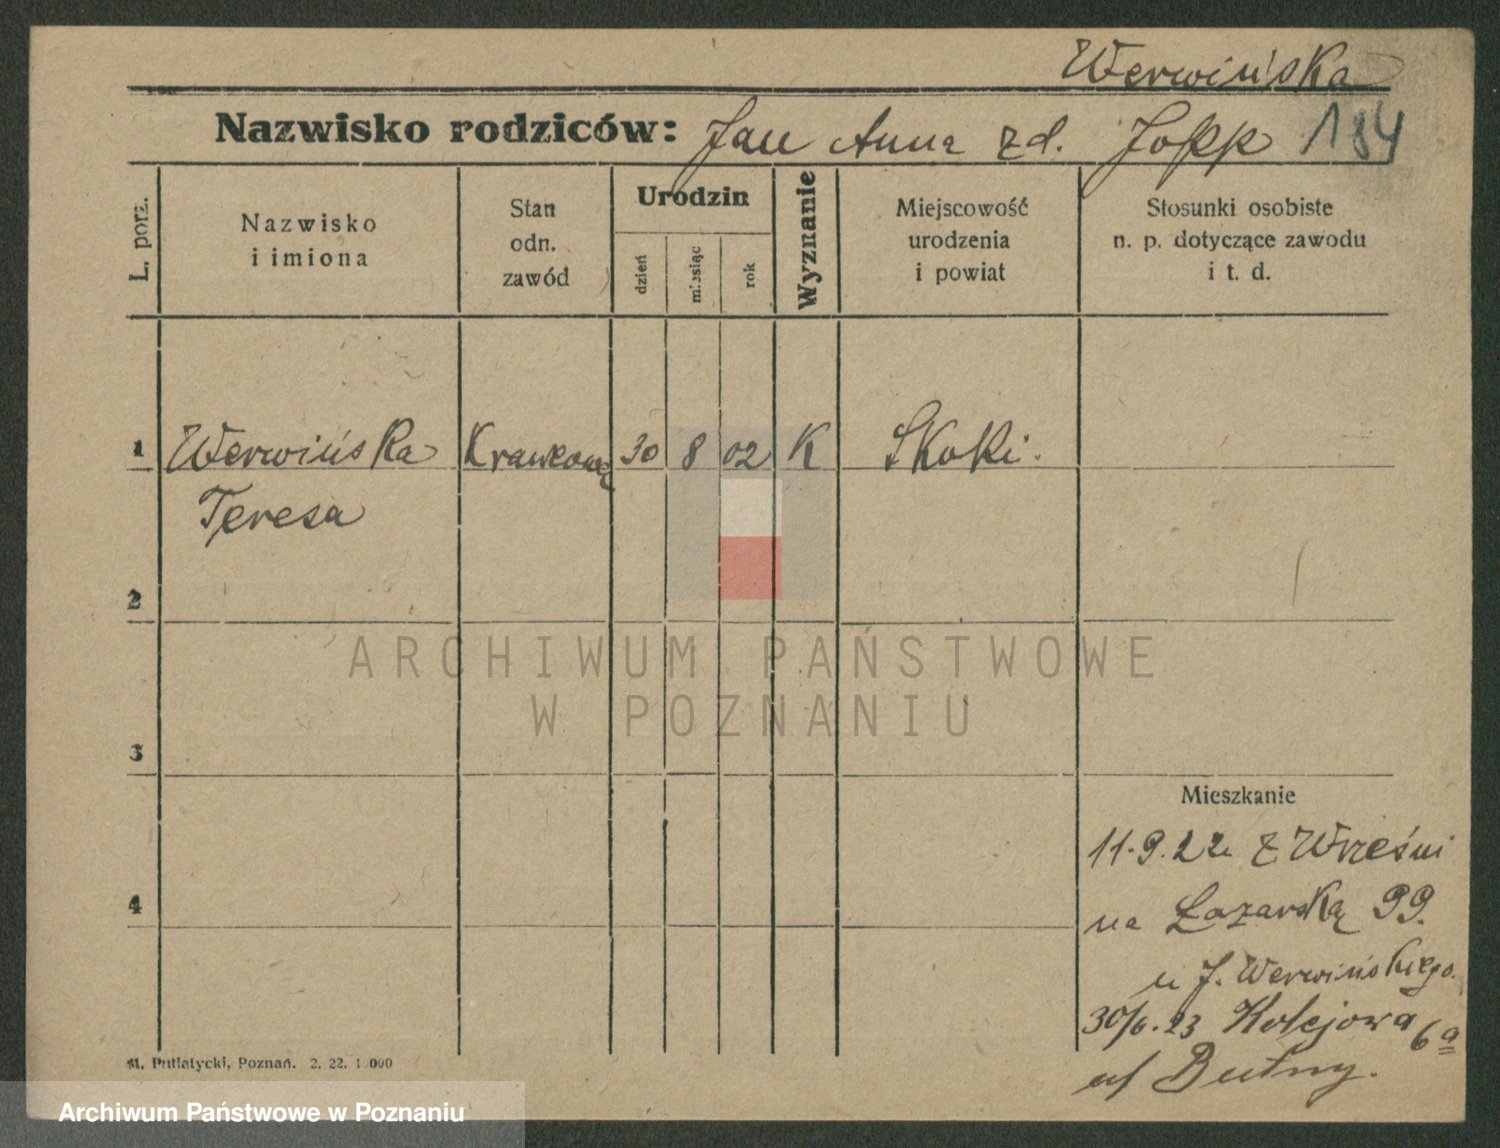 Werwińska
Nazwisko rodziców: Jan Anna zd. Jopp 184
L. porz.
Nazwisko
i imiona
Stan
odn.
zawód
Urodzin
dzień
miesiąc
rok
Wyznanie
Miejscowość
urodzenia
i powiat
Stosunki osobiste
n. p. dotyczące zawodu
i t. d.
1 Werwińska Krawcową 30 8 02 K Skoki.
Teresa
2
ARCHIWUM PAŃSTWOWE
W POZNANIU
3
Mieszkanie
11.9.22 z Wrześni
4
na Łazarską 99.
u J. Werwińskiego.
30/6.23 Kolejowa 6a
u/ Butny.
M. Putiatycki, Poznań. 2. 22. 1.000
Archiwum Państwowe w Poznaniu